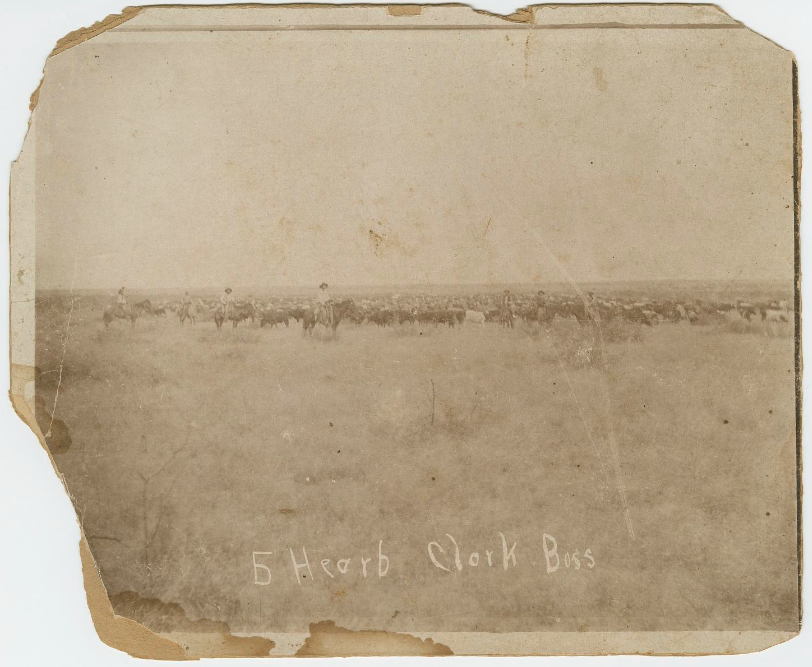 5 Hearb Clark Boss